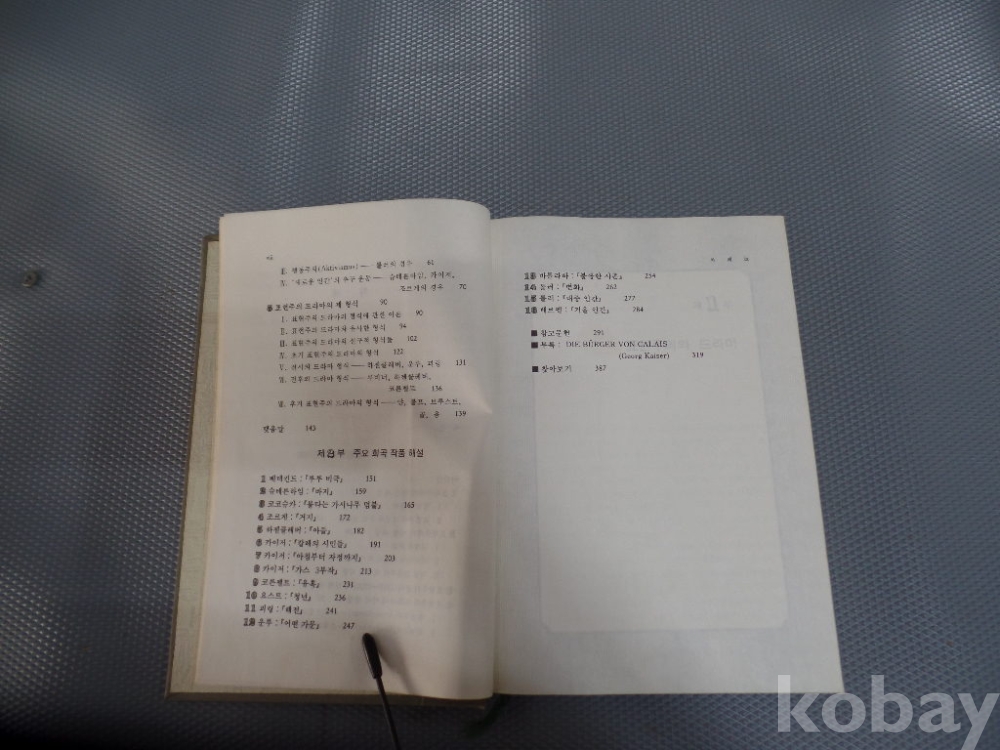 Ⅱ. 행동주의(Aktivismus) — 룰러의 경우 61
Ⅳ. '새로운 인간'의 추구 운동 — 슈테른하임, 카이저,
조르게의 경우 70
표현주의 드라마의 제 형식 90
Ⅰ. 표현주의 드라마의 형식에 관한 이론 90
Ⅱ. 표현주의 드라마와 유사한 형식 94
Ⅲ. 표현주의 드라마의 형식들 102
Ⅴ. 초기 표현주의 드라마의 형식 122
형식 — 하젠클레버, 운루, 괴링 131
Ⅵ. 전후의 드라마 형식
코른펠트 136
Ⅶ. 후기 표현주의 드라마의 형식 — 얀, 볼프, 브루스트,
골, 옹 139
맺음말 143
제2부 주요 희곡 작품 해설
1 베데킨트:『루루 비극』 151
2 슈테른하임:『바지』 159
3 코코슈카:『불타는 가시나무 덤불』 165
4 조르게:『거지』 172
5 하젠클레버:『아들』 182
6 카이저:『칼레의 시민들』 191
7 카이저:『아침부터 자정까지』 203
8 카이저:『가스 3부작』 213
9 코른펠트:『유혹』 231
10 요스트:『청년』 236
11 괴링:『해전』 241
12 운루:『어떤 가문』 247
13 바를라하:『불쌍한 사촌』 254
14 톨러:『변화』 262
15 톨러:『대중 인간』 277
16 베르펠:『거울 인간』 284
■ 참고문헌 291
■ 부록: DIE BÜRGER VON CALAIS
(Georg Kaiser) 319
■ 찾아보기 387
kobay